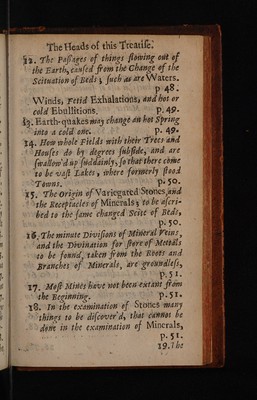 The Heads of this Treatise.
12. The Passages of things flowing out of
the Earth, caused from the Change of the
Scituation of Beds; such as are Waters.
p 48.
Winds, Fetid Exhalations, and hot or
cold Ebullitions. p. 49.
13. Earth-quakes may change an hot Spring
into a cold one. p. 49.
14. How whole Fields with their Trees and
Houses do by degrees subside, and are
swallow'd up suddainly, so that there come
to be vast Lakes, where formerly stood
Towns. p. 50.
15. The Origin of Variegated Stones, and
the Receptacles of Minerals; to be ascri-
bed to the same changed Scite of Beds,
p. 50.
16. The minute Divisions of Mineral Veins,
and the Divination for store of Mettals
to be found, taken from the Roots and
Branches of Minerals, are groundless,
p. 51.
17. Most Mines have not been extant from
the Beginning. p. 51.
18. In the examination of Stones many
things to be discover'd, that cannot be
done in the examination of Minerals,
p. 51.
19. The